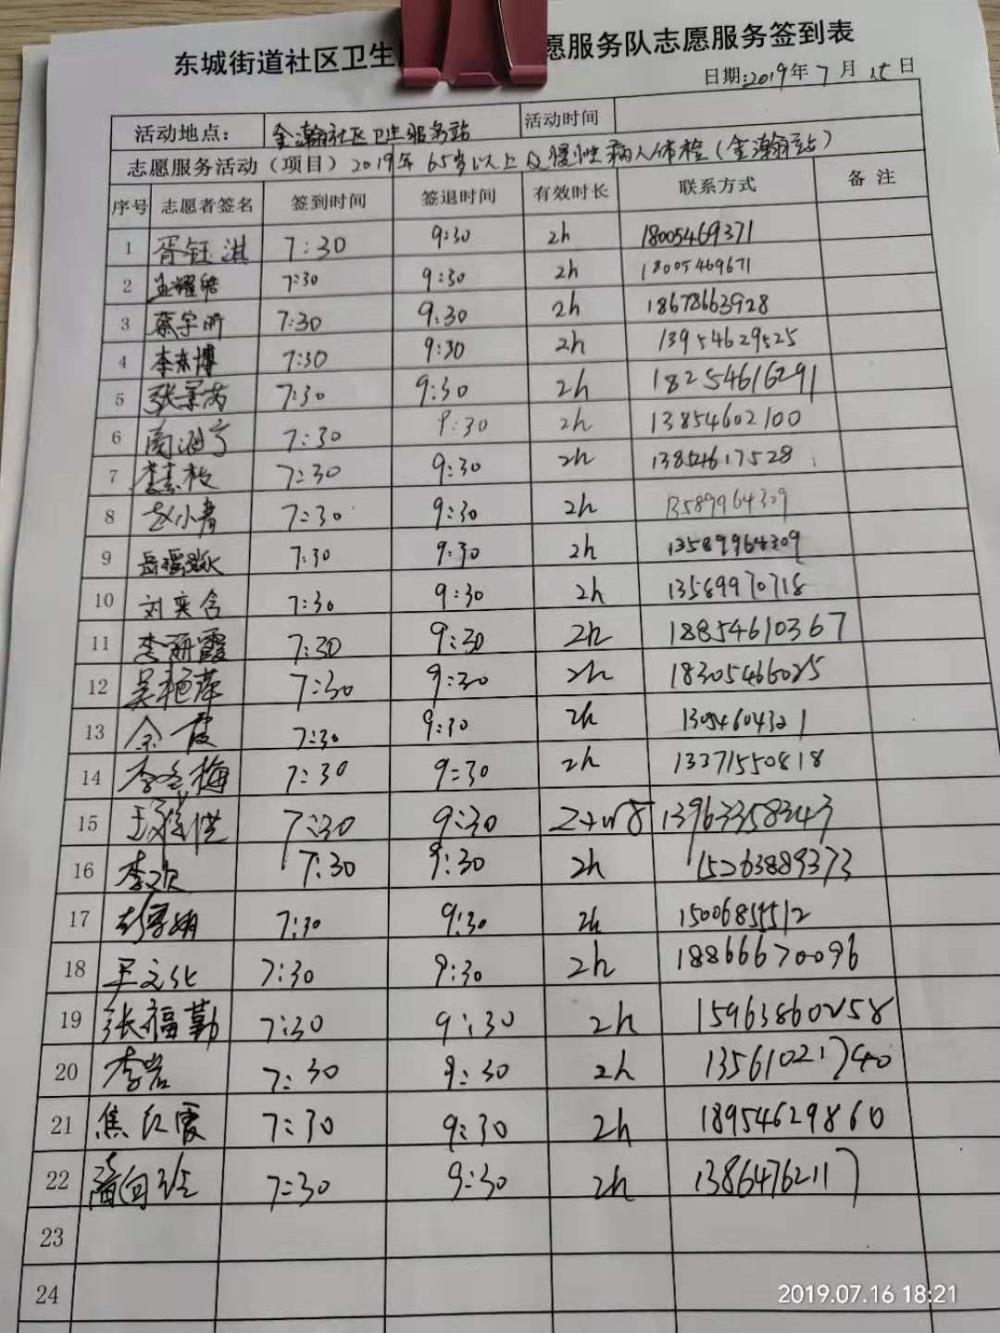 东城街道社区卫生 愿服务队志愿服务签到表
日期:2019年7月15日
活动地点: 金瀚社区卫生服务站 活动时间
志愿服务活动(项目)2019年65岁以上及慢性病人体检(金瀚站)
序号 志愿者签名 签到时间 签退时间 有效时长 联系方式 备注
1 胥钰淇 7:30 9:30 2h 18005469371
2 孟耀皓 7:30 9:30 2h 18005469671
3 蔡宇昕 7:30 9:30 2h 18678663928
4 李东博 7:30 9:30 2h 13954629525
5 张景芮 7:30 9:30 2h 18254616291
6 7:30 9:30 2h 13854602100
7 李素枝 7:30 9:30 2h 13854617528
8 赵小青 7:30 9:30 2h 13589964309
9 7:30 9:30 2h 13589964309
10 刘奕含 7:30 9:30 2h 13589970718
11 李研霞 7:30 9:30 2h 18854610367
12 吴艳萍 7:30 9:30 2h 18305466025
13 余霞 7:30 9:30 2h 13054604321
14 李冬梅 7:30 9:30 2h 13371550818
15 7:30 9:30 13963358343
16 李欢 7:30 9:30 2h 15263889373
17 彭雪娟 7:30 9:30 2h 15006855512
18 王文化 7:30 9:30 2h 18866670096
19 张福勤 7:30 9:30 2h 15963860258
20 李岩 7:30 9:30 2h 13561021740
21 焦红霞 7:30 9:30 2h 18954629860
22 7:30 9:30 2h 13864762117
23
24
2019.07.16 18:21